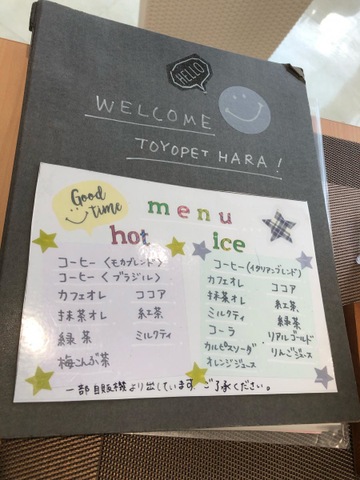 HELLO
WELCOME
TOYOPET HARA!
Good time
menu
hot
コーヒー〈モカブレンド〉
コーヒー〈ブラジル〉
カフェオレ ココア
抹茶オレ 紅茶
緑茶 ミルクティ
梅こんぶ茶
ice
コーヒー〈イタリアンブレンド〉
カフェオレ ココア
抹茶オレ 紅茶
ミルクティ 緑茶
コーラ リアルゴールド
カルピスソーダ りんごジュース
オレンジジュース
一部自販機より出しています。ご了承ください。